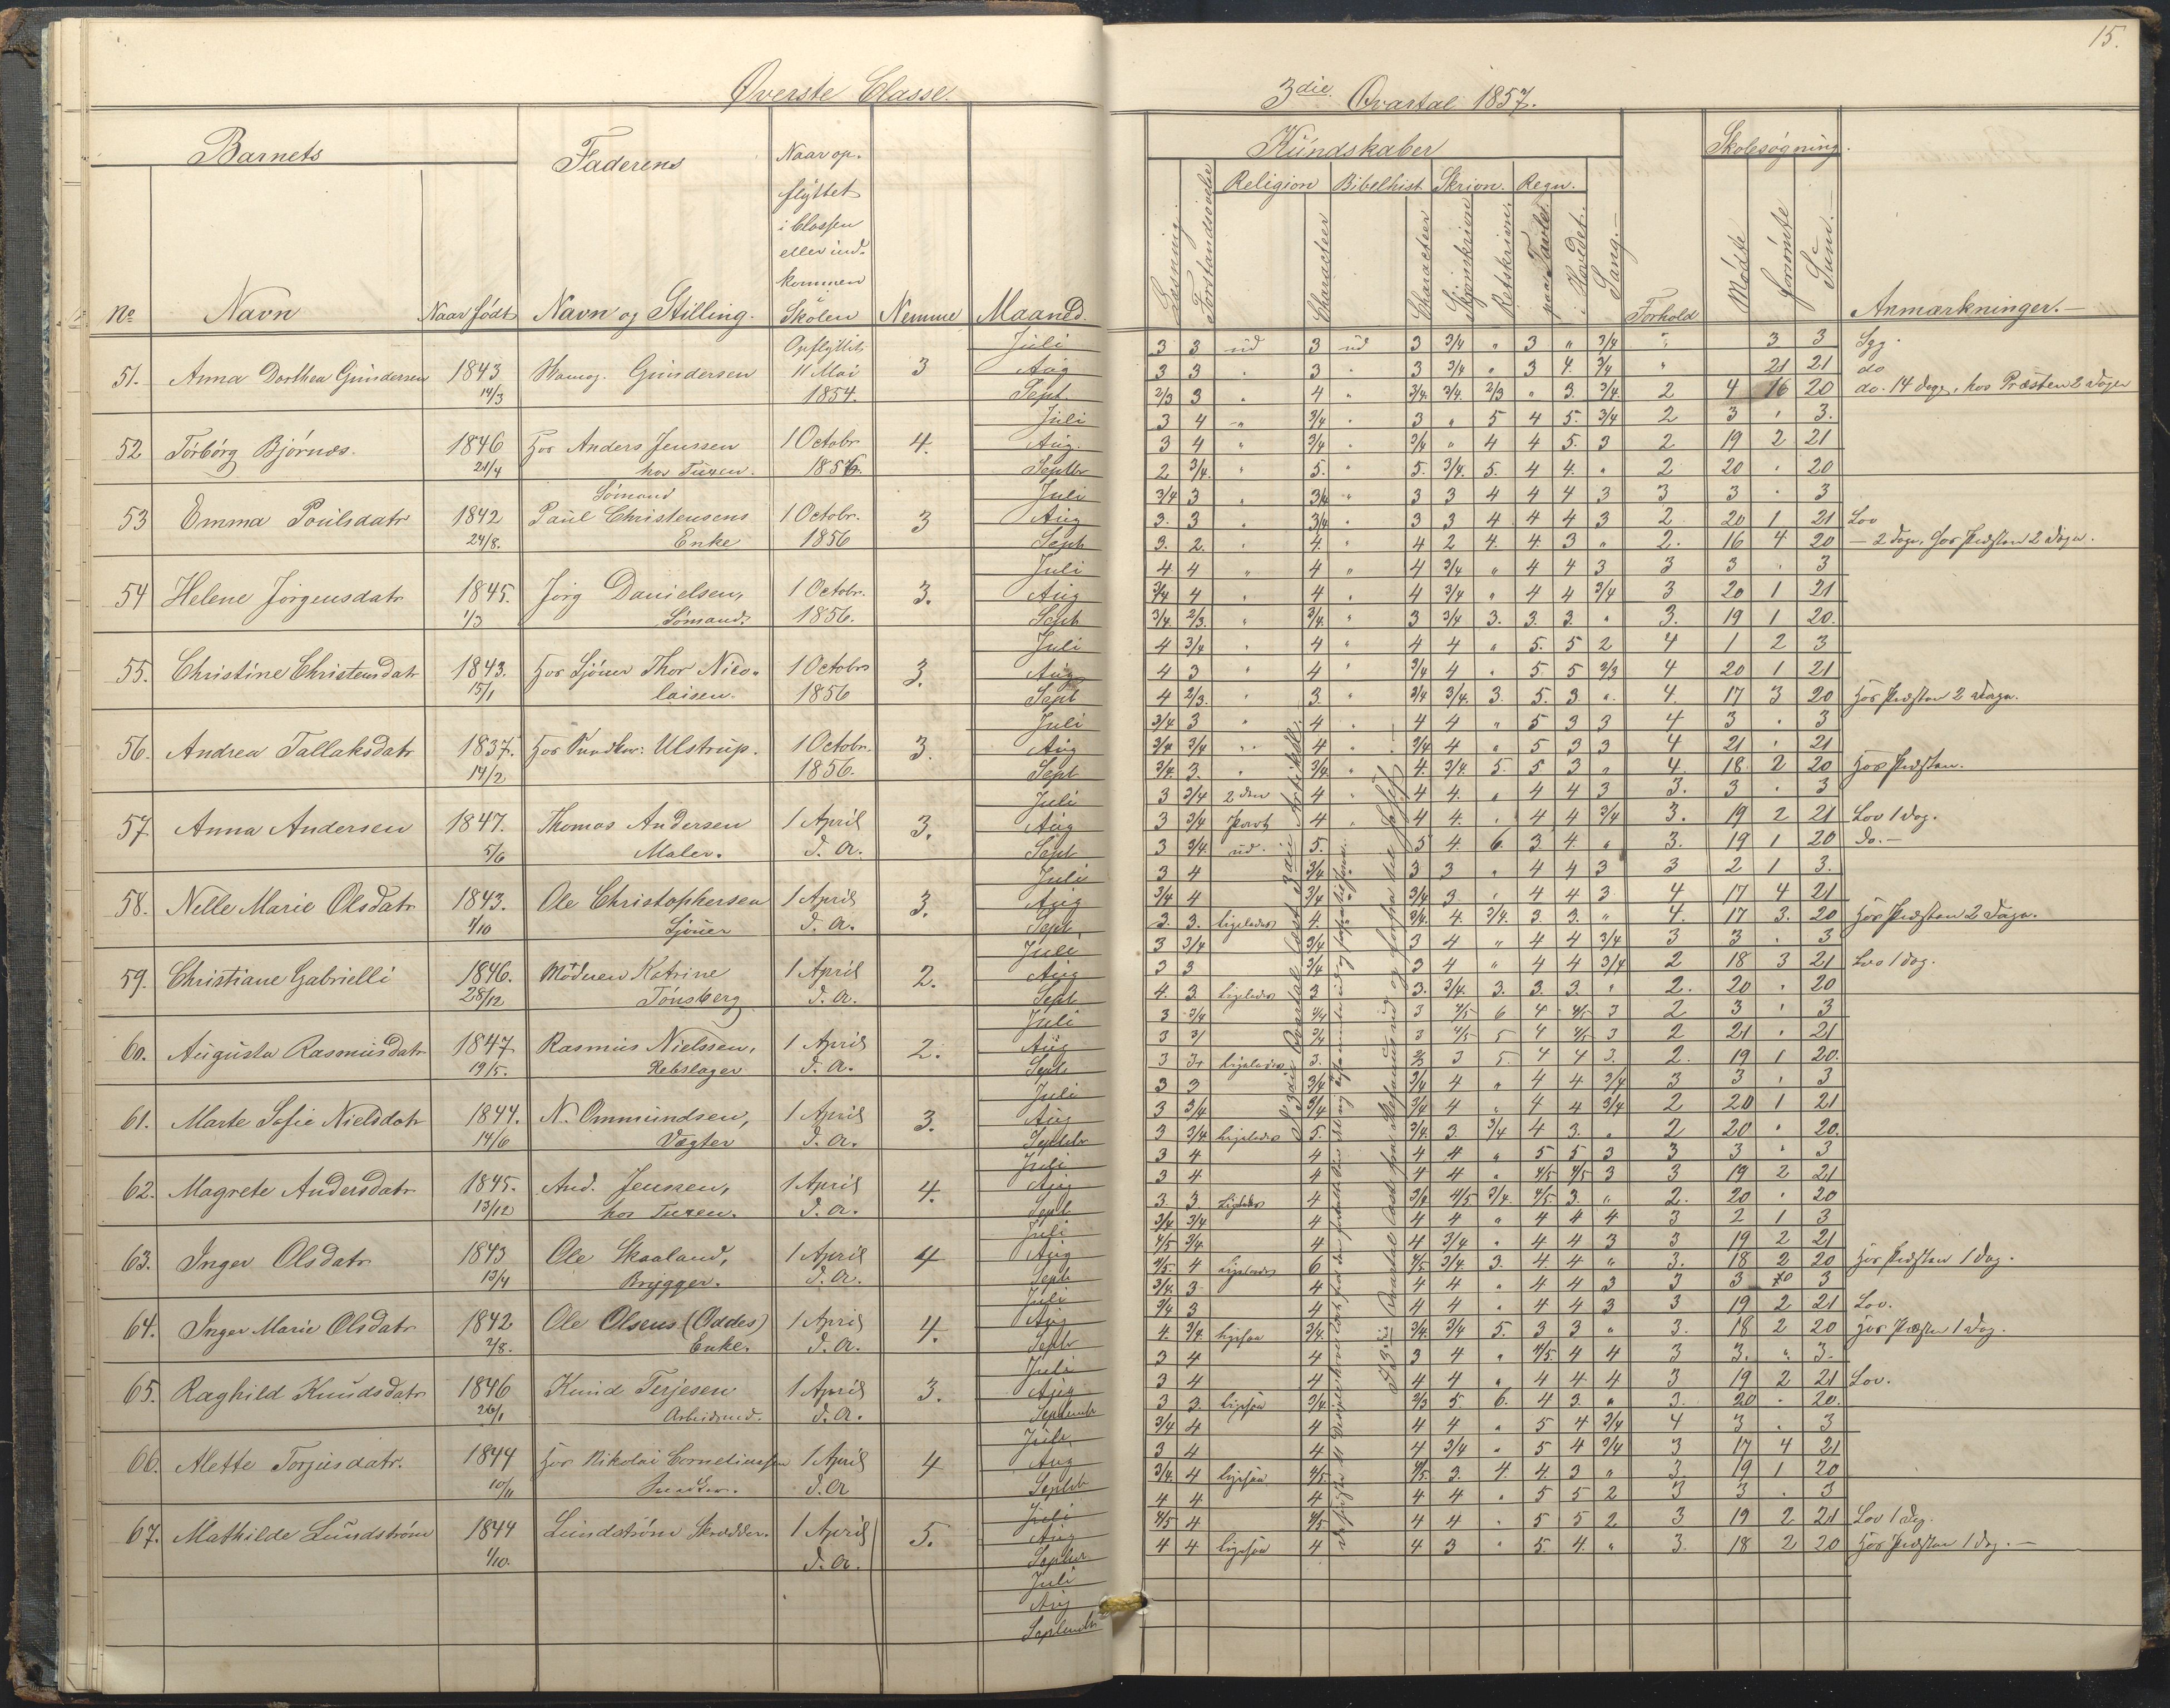 15.
Øverste Classe.
3die Qvartal 1857.
Barnets
Faderens
Naar op-
flyttet
i Classen
eller ind-
kommen
Skolen
No
Navn
Naar født
Navn og Stilling.
Nemme
Maaned
Kundskaber
Skolesøgning.
Religion Bibelhist. Skrivn. Regn.
Læsning.
Forstandsøvelse
Characteer
Characteer
Skjønskrivn
Retskrivn.
paa Tavle
i Hovdet.
Sang.
Forhold
Mødte
forsømte
Sum.
Anmærkninger.
Opflyttet
51. Anna Dorthea Gundersen 1843 14/3 Gundersen 11 Mai 1854. 3 Juli Aug Sept.
3 3 ud 3 ud 3 3/4 " 3 " 3/4 " 3 3 Syg.
3 3 " 3 " 3 3/4 " 3 4. 3/4 " 21 21 do
2/3 3 " 4 " 3/4. 3/4. 2/3 " 3. 3/4. 2 4 16 20 do. 14 dage, hos Præsten 2 Dage
52 Torborg Bjørnæs. 1846 21/4 hos Anders Jenssen hos Tuxen. 1 Octobr 1856. 4. Juli Aug. Septbr
3 4 " 3/4 " 3 " 5 4 5. 3/4 2 3 " 3.
3 4 " 3/4 " 3/4 " 4 4 5. 3 2 19 2 21
2 3/4. " 5. " 5. 3/4. 5. 4 4. " 2 20 " 20
53 Emma Poulsdatr 1842 24/8. Sømand Paul Christensens Enke 1 Octobr. 1856 3 Juli Aug Sept
3/4 3 " 3/4 " 3 3 4 4 4 3 3 3 " 3
3. 3 " 3/4 " 3 3 4 4 4 3 2 20 1 21 Lov
3. 2. " 4. " 4 2 4. 4. 3 " 2. 16 4 20 — 2 Dage, hos Præsten 2 Dage.
54 Helene Jörgensdatr 1845. 1/3 Jörg Danielsen, Sømand. 1 Octobr. 1856. 3. Juli Aug Sept
4 4 " 4 " 4 3/4 " 4 4 3 3 3 " 3
3/4 4 " 4 " 4 3/4 " 4 4 3/4 3 20 1 21
3/4. 2/3. " 3/4. " 3 3/4 3. 3. 3. " 3. 19 1 20.
55. Christine Christensdatr 1843. 15/1 hos Sjöuer Thor Nico- laisen. 1 Octobr 1856 3. Juli Aug Sept
4 3/4 " 4 " 4 4 " 5. 5 2 4 1 2 3
4 3 " 4 " 3/4 4 " 5. 5 2/3 4 20 1 21
4 2/3. " 3. " 3/4 3/4. 3. 5. 3. " 4. 17 3 20 hos Præsten 2 Dage.
56. Andrea Tallaksdatr 1837. 14/2 hos Ulstrup. 1 Octobr. 1856. 3. Juli Aug Sept
3/4 3 " 4 " 4 4 " 5 3 3 4 3 " 3
3/4 3/4 " 4 " 3/4 4 " 5 3 3 4 21 " 21
3/4. 3. " 3/4. " 4. 3/4. 5. 5 3 " 4. 18 2 20 hos Præsten.
57. Anna Andersen 1847. 5/6 Thomas Andersen Maler. 1 April d. A. 3. Juli Aug Sept
3 3/4 2den 4 " 4 4. " 4 4 3 3. 3 " 3
3 3/4 Part 4 " 4 4. " 4 4 3/4 3. 19 2 21 Lov 1 dag.
3 3/4. ud. 5. 5 4. 6. 3. 4. " 3. 19 1 20 do. —
58. Nelle Marie Olsdatr 1843. 4/10 Ole Christophersen Sjöuer 1 April d. A. 3. Juli Aug Sept.
3 4 3/4 3 3 " 4 4 3 3 2 1 3.
3/4 4 3/4 3/4 3 " 4 4 3 4 17 4 21
3. 3. ligeledes 4. 3/4. 4. 3/4. 3. 3. " 4. 17 3. 20 hos Præsten 2 Dage.
59. Christiane Gabrielli 1846. 28/12 Moderen Katrine Tønsberg 1 April d. A. 2. Juli Aug Sept
3 3/4 3/4 3 4 " 4 4 3/4 3 3 " 3
3 3 3/4 3 4 " 4 4 3/4 2 18 3 21 Lov 1 dag.
4. 3. ligeledes 3 3. 3/4. 3. 3. 3. " 2. 20 " 20
60. Augusta Rasmusdatr 1847 19/5. Rasmus Nielssen, Rebslager 1 April d. A. 2. Juli Aug Sept
3 3/4 3/4 3 4/5 6 4 4/5 3 2 3 " 3
3 3/4 3 4/5 5 4 4/5 3 2 21 " 21
3 ligeledes 3. 3 5. 4 4 3. 2. 19 1 20.
61. Marte Sofie Nielsdatr 1844. 14/6 N. Ommundsen, Vægter 1 April d. A. 3. Juli Aug Septebr
3 3 3/4 3/4 4 " 4 4 3/4 3 3 " 3
3 3/4 3/4 3/4 4 " 4 4 3/4 2 20 1 21
3 3/4 ligeledes 5. 3/4. 3. 3/4 4 3. " 2 20 " 20.
62. Magrete Andersdatr 1845. 13/12 And. Jenssen, hos Tuxen. 1 April d. A. 4. Juli Aug Sept
3 4 4 4 4 " 5 5 3 3 3 " 3
3 4. 4 4 4 " 4/5 4/5 3 3 19 2 21
3 3. Ligeledes 4 3/4 4/5 3/4. 4/5. 3. " 2. 20 " 20
63. Inger Olsdatr 1843 13/4 Ole Skaaland, Brygger. 1 April d. A. 4 Juli Aug Sept
3/4 3/4 4 4 4 " 4 4 4 3 2 1 3
4/5 3/4. 4 4 3/4 " 4 4 3 3 19 2 21
4/5. 4 ligeledes 6 4/5 3/4. 3. 4 4 " 3. 18 2 20 hos Præsten 1 Dag.
64. Inger Marie Olsdatr 1842 2/8. Ole Olsens (Oddes) Enke. 1 April d. A. 4. Juli Aug Septbr
3/4. 3 4 4 4 " 4 4 3 3 3 3
3/4 3 4 4 4 " 4 4 3 3 19 2 21 Lov.
4. 3/4. ligesaa 3/4. 3/4. 3/4 5. 3 3 " 3. 18 2 20 hos Præsten 1 Dag.
65. Raghild Knudsdatr 1846 26/1 Knud Terjesen Arbeidsmd. 1 April d. A. 3. Juli Aug Septembr
3 4 4 3 4 " 4/5. 4 4 3 3. " 3.
3 4 4 4 4 " 4 4 4 3 19 2 21 Lov.
3 3. ligesaa 3/4. 2/3 5. 6. 4 3. " 3. 20 " 20.
66. Alette Torjusdatr. 1844 10/11 hos Nikolai Corneliussen 1 April d. A 4 Juli Aug Septbr
3/4 4 4 4 4 " 5 4 3/4 4 3 " 3
3 4 4 4 3/4 " 5 4 3/4 3 17 4 21
3/4. 4 ligesaa 4/5. 4/5. 3. 4. 4. 3 " 3. 19 1 20
67. Mathilde Lundstrøm 1844 1/10. Lundstrøm Skrædder. 1 April d. A. 5. Juli Aug Septbr
4 4 4 4 4 " 5 5 2 3 3 " 3
4/5 4 4/5 4 4 " 5 5 2 3 19 2 21 Lov 1 dag.
4 4 ligesaa 4 4 3 " 5. 4. " 3. 18 2 20 hos Præsten 1 Dag. —
Juli
Aug
Septembr